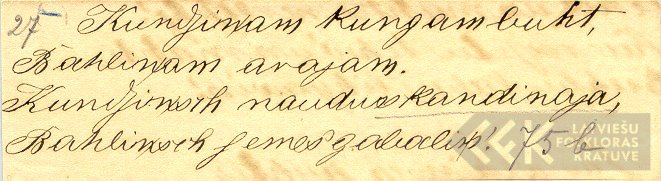 27 Kundziņam kungam buht,
Bahliņam arajam.
Kundziņsch naudu skandinaja,
Bahliņsch semes gabaliņ! 75 b
LATVIEŠU
FOLKLORAS
KRĀTUVE